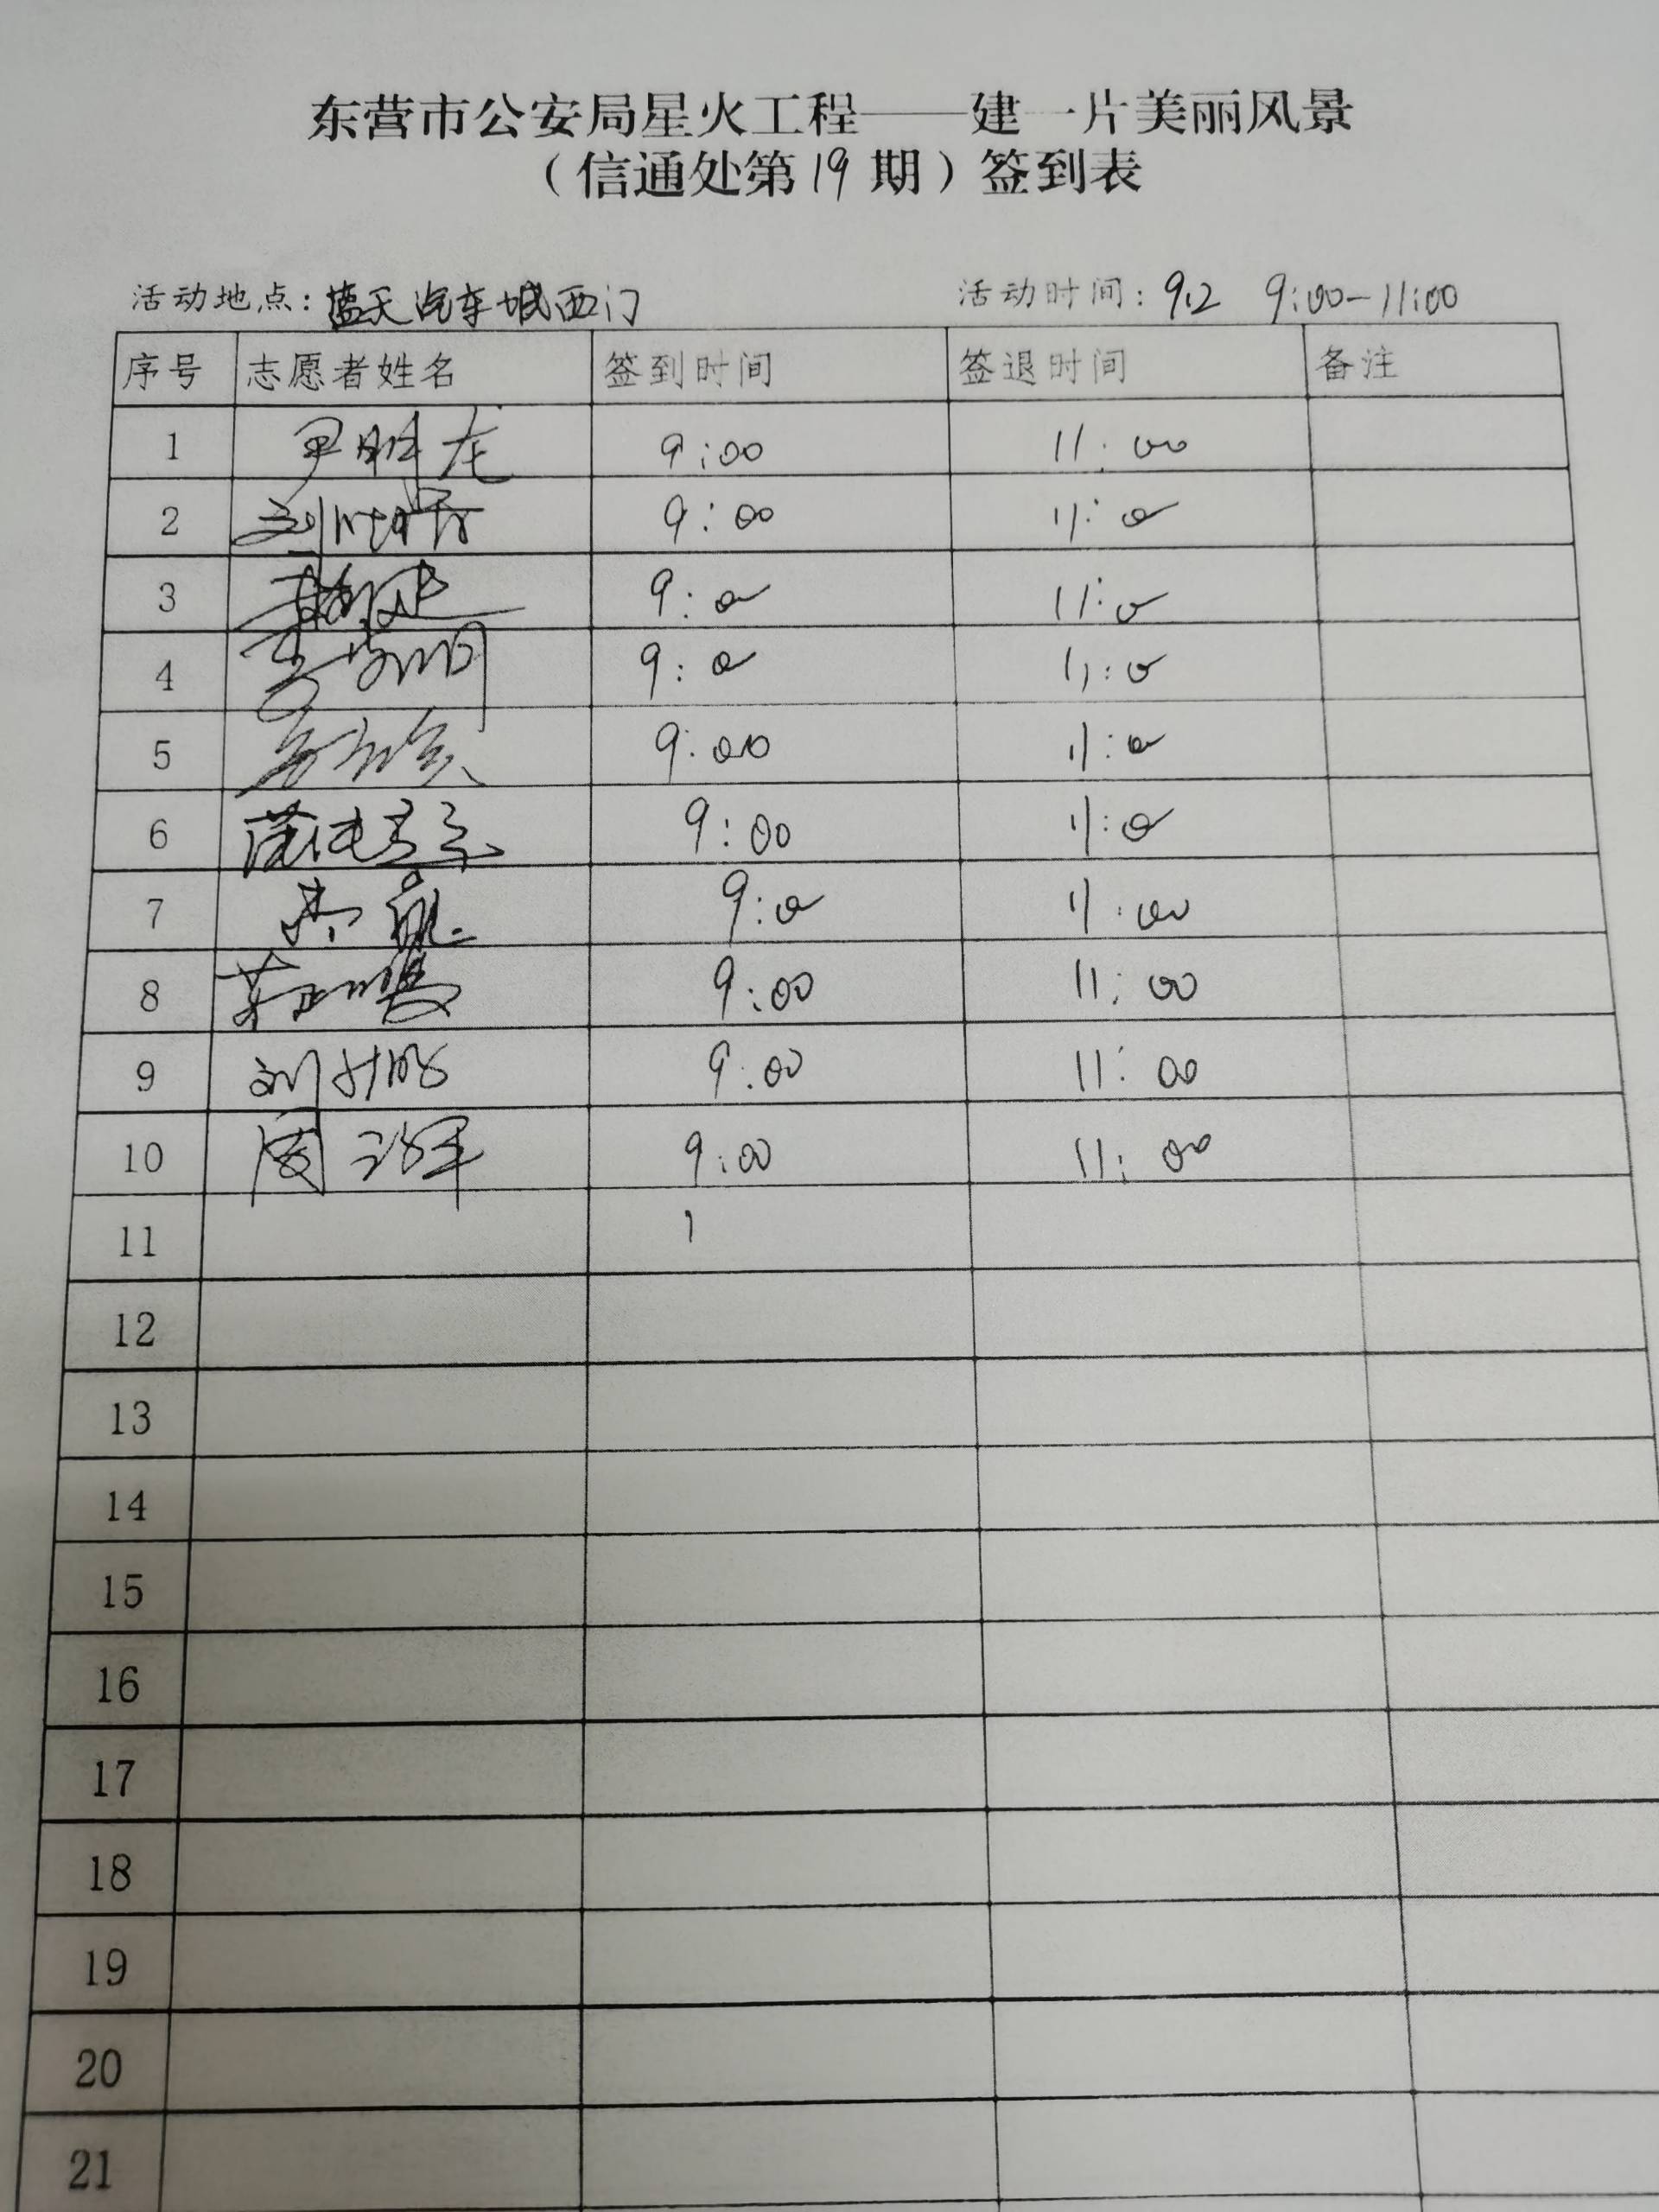 东营市公安局星火工程——建一片美丽风景
（信通处第19期）签到表
活动地点：蓝天汽车城西门 活动时间：9.2 9:00-11:00
序号 志愿者姓名 签到时间 签退时间 备注
1 尹胜龙 9:00 11:00
2 9:00 11:00
3 9:00 11:00
4 9:00 11:00
5 9:00 11:00
6 9:00 11:00
7 9:00 11:00
8 9:00 11:00
9 9:00 11:00
10 9:00 11:00
11
12
13
14
15
16
17
18
19
20
21